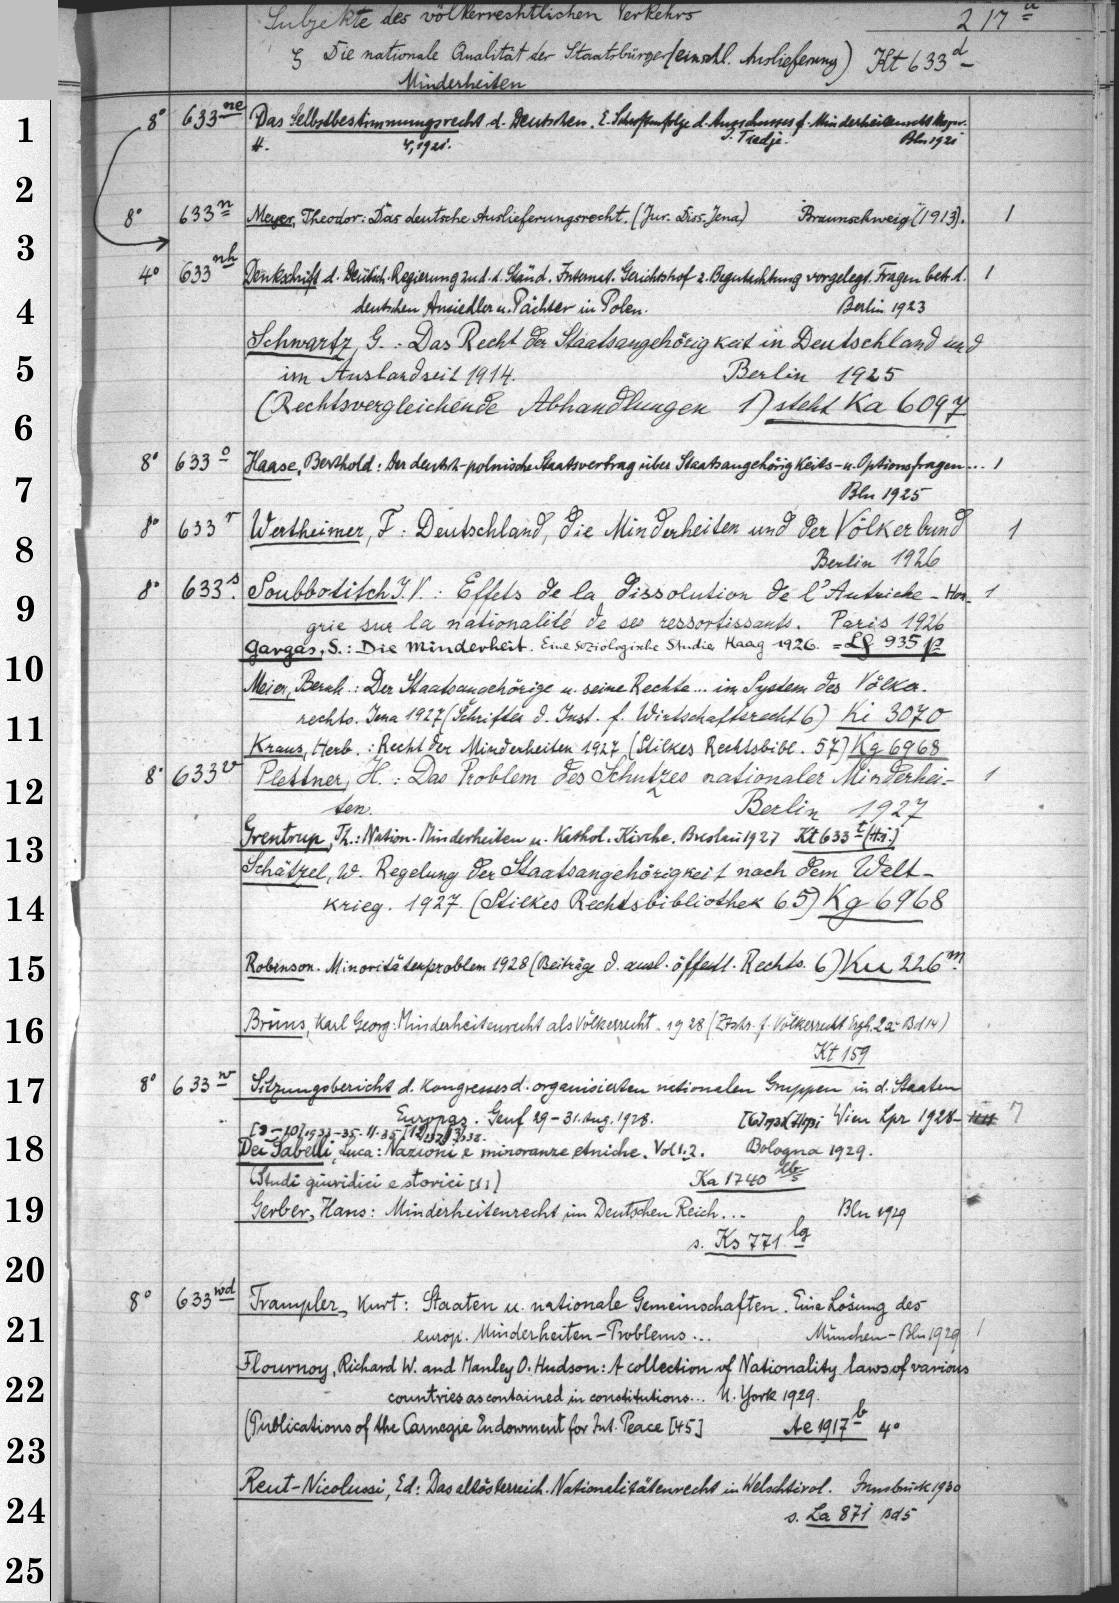 Subjekte des völkerrechtlichen Verkehrs 217 a
ξ Die nationale Qualität der Staatsbürger (einschl. Auslieferung) Kt 633 d
Minderheiten
1 8° 633 ne Das Selbstbestimmungsrecht d. Deutschen. E. Schriftenfolge d. Ausschusses f. Minderheitenrecht
H. 4, 1921. J. Tiedje. Bln 1921
2
8° 633 n Meyer, Theodor: Das deutsche Auslieferungsrecht. (Jur. Diss. Jena) Braunschweig (1913). 1
3
4° 633 nh Denkschrift d. Deutsch. Regierung zu d. d. Ständ. Internat. Gerichtshof z. Begutachtung vorgelegt. Fragen betr. d. 1
4 deutschen Ansiedler u. Pächter in Polen. Berlin 1923
Schwartz, G.: Das Recht der Staatsangehörigkeit in Deutschland und
5 im Ausland seit 1914. Berlin 1925
6 (Rechtsvergleichende Abhandlungen 1) steht Ka 6097
8° 633 o Haase, Berthold: Der deutsch-polnische Staatsvertrag über Staatsangehörigkeits- u. Optionsfragen... 1
7 Bln 1925
8° 633 r Wertheimer, F: Deutschland, die Minderheiten und der Völkerbund 1
8 Berlin 1926
8° 633 s. Soubbotitch I. V.: Effets de la dissolution de l'Autriche-Hon- 1
9 grie sur la nationalité de ses ressortissants. Paris 1926
Gargas, S.: Die Minderheit. Eine soziologische Studie Haag 1926. = Lf 935 p
10 Meier, Bernh.: Der Staatsangehörige u. seine Rechte... im System des Völker-
11 rechts. Jena 1927 (Schriften d. Inst. f. Wirtschaftsrecht 6) Ki 3070
Kraus, Herb.: Recht der Minderheiten 1927 (Stilkes Rechtsbibl. 57) Kg 6968
8° 633 v Plettner, H.: Das Problem des Schutzes nationaler Minderhei- 1
12 ten. Berlin 1927
13 Grentrup, Th.: Nation. Minderheiten u. Kathol. Kirche. Breslau 1927 Kt 633 t (Hi.)
Schätzel, W. Regelung der Staatsangehörigkeit nach dem Welt-
14 krieg. 1927. (Stilkes Rechtsbibliothek 65) Kg 6968
15 Robinson. Minoritätenproblem 1928 (Beiträge d. ausl. öffentl. Rechts. 6) Ku 226 m.
16 Bruns, Karl Georg: Minderheitenrecht als Völkerrecht. 1928 (Ztschr. f. Völkerrecht Ergh. 2 zu Bd 14)
Kt 159
17 8° 633 w Sitzungsbericht d. Kongresses d. organisierten nationalen Gruppen in d. Staaten
Europas. Genf 29-31. Aug. 1928. Wien Lpz 1928- 7
[9-10] 1933-35
18 Dei Sabelli, Luca: Nazioni e minoranze etniche. Vol 1. 2. Bologna 1929.
(Studi giuridici e storici [1]) Ka 1740
19 Gerber, Hans: Minderheitenrecht im Deutschen Reich... Bln 1929
s. Ks 771 lg
20
8° 633 wd Trampler, Kurt: Staaten u. nationale Gemeinschaften. Eine Lösung des
21 europ. Minderheiten-Problems... München-Bln 1929 1
Flournoy, Richard W. and Manley O. Hudson: A collection of Nationality laws of various
22 countries as contained in constitutions... N. York 1929.
(Publications of the Carnegie Endowment for Int. Peace [45] Ae 1917 b 4°
23
Reut-Nicolussi, Ed: Das altösterreich. Nationalitätenrecht in Welschtirol. Innsbruck 1930
24 s. La 871 Bd 5
25